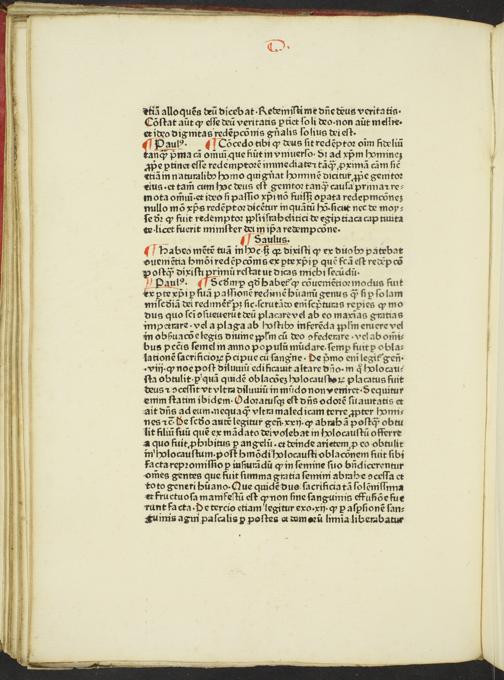 etiā alloquēs deū dicebat. Redemisti me dn̄e deus veritatis.
Cōstat aūt esse deū veritatis soli deo. non aūt messie.
et ideo dignitas redēpcōnis gn̄alis solius dei est.
¶ Paul9. ¶ Cōcedo tibi deus fit redēptor oīm fideliū
tanq̄ pma cā omniū que fiūt in vniuerso. Si ad xp̄m hominez
esse redemptorē immediate tanq̄ ad cām
etiā in naturalibus homo homīnē dicitur genitor
eius. et tam cum hoc deus est genitor tanq̄ causa prima et re-
mota omniū. et ideo si passio xp̄i nō fuisset opata redempcionez
nullo mō xp̄s redēptor dicētur inquātū hō. sicut nec de moy-
se fuit redemptor israhelitici de egiptiaca captiuita
te. licet fuerit minister dei in ip̄a redempcone.
¶ Saulus.
¶ Habeo mētē tuā in hoc. dixisti ex duobus patebat
ouenētia hmōi redēpcōnis ex pte xp̄i est redēpcō
postq̄ dixisti primū restat ut dicas michi secūdū.
¶ Paul9. ¶ Scd'm modus fuit
ex pte xp̄i suā passionē redimē humanū genus si solam
misc̄diā dei redimēt. sic. scrutādo scripturas repies mo-
dus quo consueuerūt deū placare vel ab eo maximas gratias
impetrare. vel a plaga ab hostibus inferēda euere vel
in obseruācōe legis diuine cū deo federare. vel ab omni-
bus pccīs semel in anno populū mūdare. semp fuit obla-
lationē sacrificiorum precipue cū sangne. De p̄mo enī legit gen̄.
.viij. noe post diluuiū edificauit altare dn̄o. in holocau-
sta obtulit. quidē oblacōes holocaustorum placatus fuit
deus concessit vt vltra diluuiū in mūdo non veniret. Sequitur
enim statim ibidem. Odoratusque est dn̄s odorē suauitatis et
ait dn̄s ad eum. nequaq̄ vltra maledicam terre propter homi-
nes etc̄. De scd̄o autē legitur gen̄. xxij. abrahā postq̄ obtu
lit filiū suū quē ex mādato dei volebat in holocaustū offerre
a quo fuit prohibitus angelū. et deinde arietem eo obtulit
in holocaustum. post hmōdi holocausti oblacōnem fuit sibi
facta repromissio iusiurādū in semine suo bn̄dicerentur
om̄es gentes que fuit summa gratia semini abrahe concessa et
toto generi hūano. Que quidē duo sacrificia tā solēnissima
et fructuosa manifestū est non sine sanguinis effusione fue
runt facta. De tercio etiam legitur exo. xij. aspsionē san-
guinis agni pascalis postes et domorū limīa liberabatur